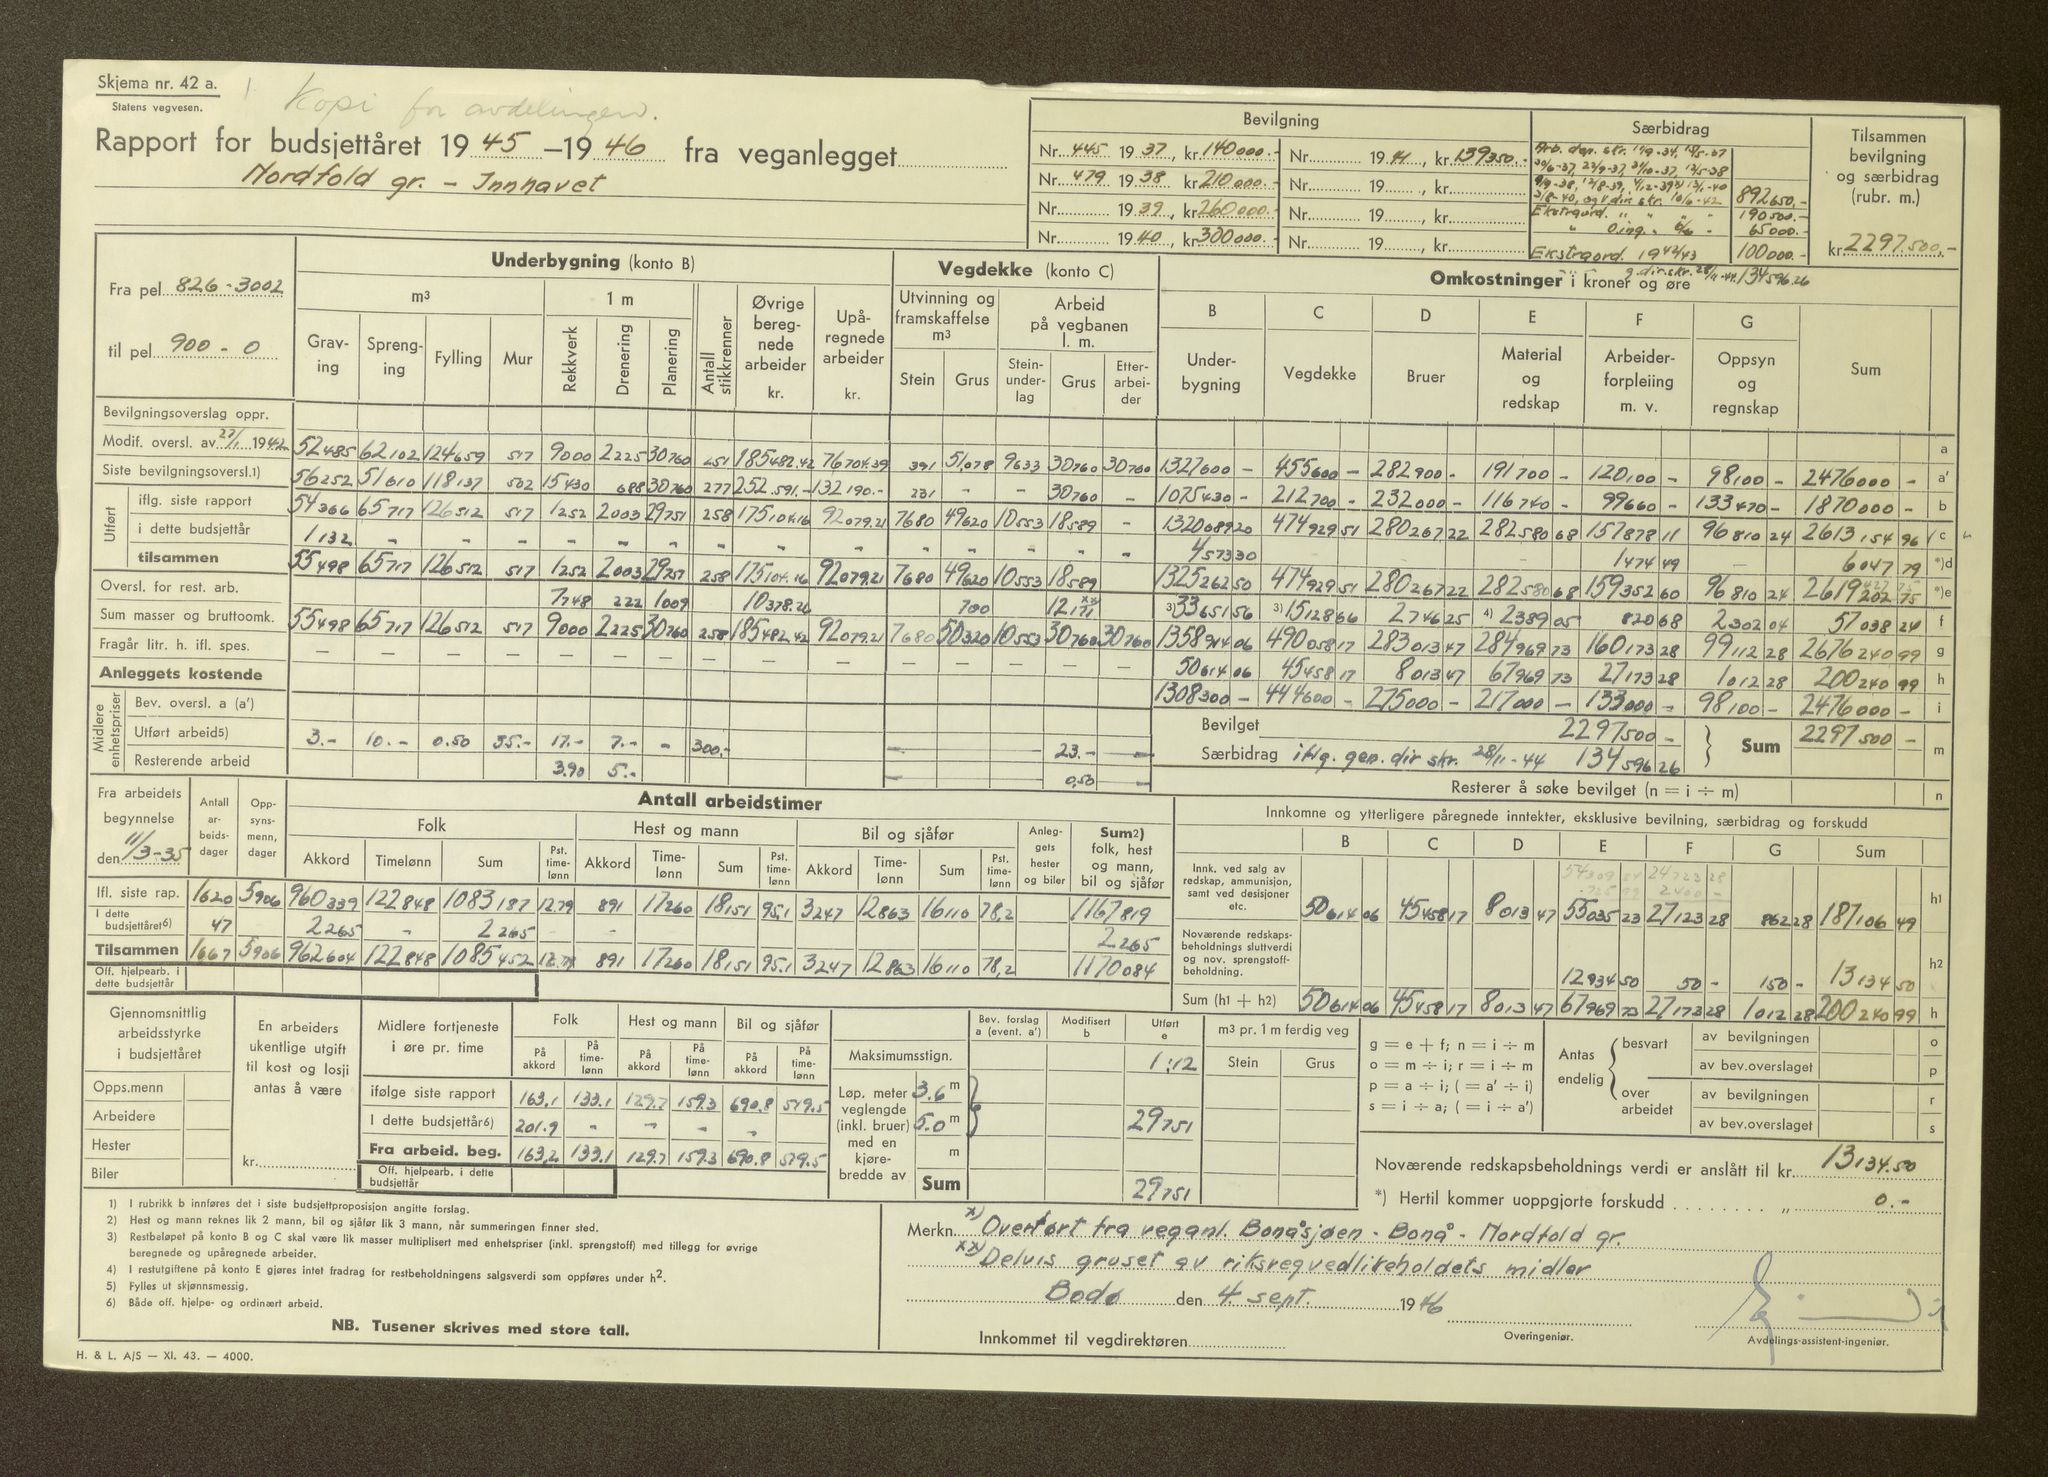 Skjema nr. 42 a.
Statens vegvesen.
Kopi for avdelingen.
Rapport for budsjettåret 1945 –1946 fra veganlegget
Nordfold gr. – Innhavet
Bevilgning
Nr. 445 1937, kr 140000.- Nr. 1941, kr 139350.-
Nr. 479 1938, kr 210000.- Nr. 19 , kr
Nr. 1939, kr 260000.- Nr. 19 , kr
Nr. 1940, kr 300000.- Nr. 19 , kr
Særbidrag
Arb. dep. skr. 19/9-34,
892650,-
Ekstraord. " " " " 190500.-
65000.-
Ekstraord. 1942/43 100000.-
g. dir. skr. 28/11-44. 134596.26
Tilsammen
bevilgning
og særbidrag
(rubr. m.)
kr 2297500,-
Fra pel 826-3002
til pel 900-0
Underbygning (konto B)
m³
1 m
Grav-
ing
Spreng-
ing
Fylling
Mur
Rekkverk
Drenering
Planering
Antall
stikkrenner
Øvrige
bereg-
nede
arbeider
kr.
Upå-
regnede
arbeider
kr.
Vegdekke (konto C)
Utvinning og
framskaffelse
m³
Stein
Grus
Arbeid
på vegbanen
l. m.
Stein-
under-
lag
Grus
Etter-
arbei-
der
Omkostninger i kroner og øre
B
Under-
bygning
C
Vegdekke
D
Bruer
E
Material
og
redskap
F
Arbeider-
forpleiing
m. v.
G
Oppsyn
og
regnskap
Sum
Bevilgningsoverslag oppr. a
Modif. oversl. av 22/1 1942 52485 62102 124659 517 9000 2225 30760 251 185482.42 76704.39 391 51078 9633 30760 30760 1327600 – 455600 – 282900 – 191700 – 120100 – 98100 – 2476000 – a'
Siste bevilgningsoversl.1) 56252 51610 118137 502 15430 688 30760 277 252.591.- 132190.- 231 – – 30760 – 1075430 – 212700 – 232000 – 116740 – 99660 – 133470 – 1870000 – b
Utført
iflg. siste rapport 54366 65717 126512 517 1252 2003 29751 258 175104.16 92079.21 7680 49620 10553 18589 – 1320689 20 474929 51 280267 22 282580 68 157878 11 96810 24 2613154 96 c
i dette budsjettår 1132 – – – – – – – – – – – – – – 4573 30 – – – 1474 49 – 6047 79 *)d
tilsammen 55498 65717 126512 517 1252 2003 29751 258 175104.16 92079.21 7680 49620 10553 18589 1325262 50 474929 51 280267 22 282580 68 159352 60 96810 24 2619202 75 *)e
Oversl. for rest. arb. 7748 222 1009 10378.26 700 12171 xx 3)33651 56 3)15128 66 2746 25 4)2389 05 820 68 2302 04 57038 24 f
Sum masser og bruttoomk. 55498 65717 126512 517 9000 2225 30760 258 185482.42 92079.21 7680 50320 10553 30760 30760 1358914 06 490058 17 283013 47 284969 73 160173 28 99112 28 2676240 99 g
Fragår litr. h. ifl. spes. – – – – – – – – – – – – – – – 50614 06 45458 17 8013 47 67969 73 27173 28 1012 28 200240 99 h
Anleggets kostende 1308300 – 444600 – 275000 – 217000 – 133000 – 98100 – 2476000 – i
Midlere
enhetspriser
Bev. oversl. a (a')
Utført arbeid5) 3.- 10.- 0.50 35.- 17.- 7.- – 300.- 23.-
Resterende arbeid 3.90 5.- 0,50
Bevilget 2297500 –
Særbidrag iflg. gen. dir skr. 28/11-44 134596 26
Sum 2297500 – m
Resterer å søke bevilget (n = i ÷ m) n
Fra arbeidets
begynnelse
den 11/3-35
Antall
ar-
beids-
dager
Opp-
syns-
menn,
dager
Antall arbeidstimer
Folk
Akkord
Timelønn
Sum
Pst.
time-
lønn
Hest og mann
Akkord
Time-
lønn
Sum
Pst.
time-
lønn
Bil og sjåfør
Akkord
Time-
lønn
Sum
Pst.
time-
lønn
Anleg-
gets
hester
og biler
Sum2)
folk, hest
og mann,
bil og sjåfør
Ifl. siste rap. 1620 5906 960339 122848 1083187 12.79 891 17260 18151 95.1 3247 12863 16110 78,2 1167819
I dette
budsjettåret6) 47 2265 – 2265 – – – – – – – – – 2265
Tilsammen 1667 5906 962604 122848 1085452 891 17260 18151 95.1 3247 12863 16110 78,2 1170084
Off. hjelpearb. i
dette budsjettår
Innkomne og ytterligere påregnede inntekter, eksklusive bevilning, særbidrag og forskudd
B C D E F G Sum
54309 24723 28
725 99 2400 –
Innk. ved salg av
redskap, ammunisjon,
samt ved desisjoner
etc.
50614 06 45458 17 8013 47 55035 23 27123 28 862 28 187106 49 h1
Noværende redskaps-
beholdnings sluttverdi
og nov. sprengstoff-
beholdning.
12934 50 50 – 150 – 13134 50 h2
Sum (h1 + h2) 50614 06 45458 17 8013 47 67969 73 27173 28 1012 28 200240 99 h
Gjennomsnittlig
arbeidsstyrke
i budsjettåret
Opps.menn
Arbeidere
Hester
Biler
En arbeiders
ukentlige utgift
til kost og losji
antas å være
kr.
Midlere fortjeneste
i øre pr. time
Folk
Hest og mann
Bil og sjåfør
På
akkord
På
time-
lønn
På
akkord
På
time-
lønn
På
akkord
På
time-
lønn
ifølge siste rapport 163,1 133.1 129.7 159.3 690.8 579.5
I dette budsjettår6) 201.9 – – – – –
Fra arbeid. beg. 163,2 133.1 129.7 159.3 690.8 579.5
Off. hjelpearb. i dette
budsjettår
Bev. forslag
a (event. a')
Modifisert
b
Utført
e
Maksimumsstign. 1:12
Løp. meter
veglengde
(inkl. bruer)
med en
kjøre-
bredde av
3.6 m
5.0 m 29751
m
Sum 29751
m3 pr. 1 m ferdig veg
Stein
Grus
g = e + f; n = i ÷ m
o = m ÷ i; r = i ÷ m
p = a ÷ i; ( = a' ÷ i)
s = i ÷ a; ( = i ÷ a')
Antas
endelig
besvart
over
arbeidet
av bevilgningen o
av bev.overslaget p
av bevilgningen r
av bev.overslaget s
Noværende redskapsbeholdnings verdi er anslått til kr. 13134.50
*) Hertil kommer uoppgjorte forskudd " 0.-
1) I rubrikk b innføres det i siste budsjettproposisjon angitte forslag.
2) Hest og mann reknes lik 2 mann, bil og sjåfør lik 3 mann, når summeringen finner sted.
3) Restbeløpet på konto B og C skal være lik masser multiplisert med enhetspriser (inkl. sprengstoff) med tillegg for øvrige
beregnede og upåregnede arbeider.
4) I restutgiftene på konto E gjøres intet fradrag for restbeholdningens salgsverdi som oppføres under h².
5) Fylles ut skjønnsmessig.
6) Både off. hjelpe- og ordinært arbeid.
NB. Tusener skrives med store tall.
H. & L. A/S — XI. 43. — 4000.
Merkn. x) Overført fra veganl. Bonåsjøen - Bonå - Nordfold gr.
xx) Delvis gruset av riksvegvedlikeholdets midler
Bodø den 4 sept. 1946
Innkommet til vegdirektøren
Overingeniør.
Avdelings-assistent-ingeniør.